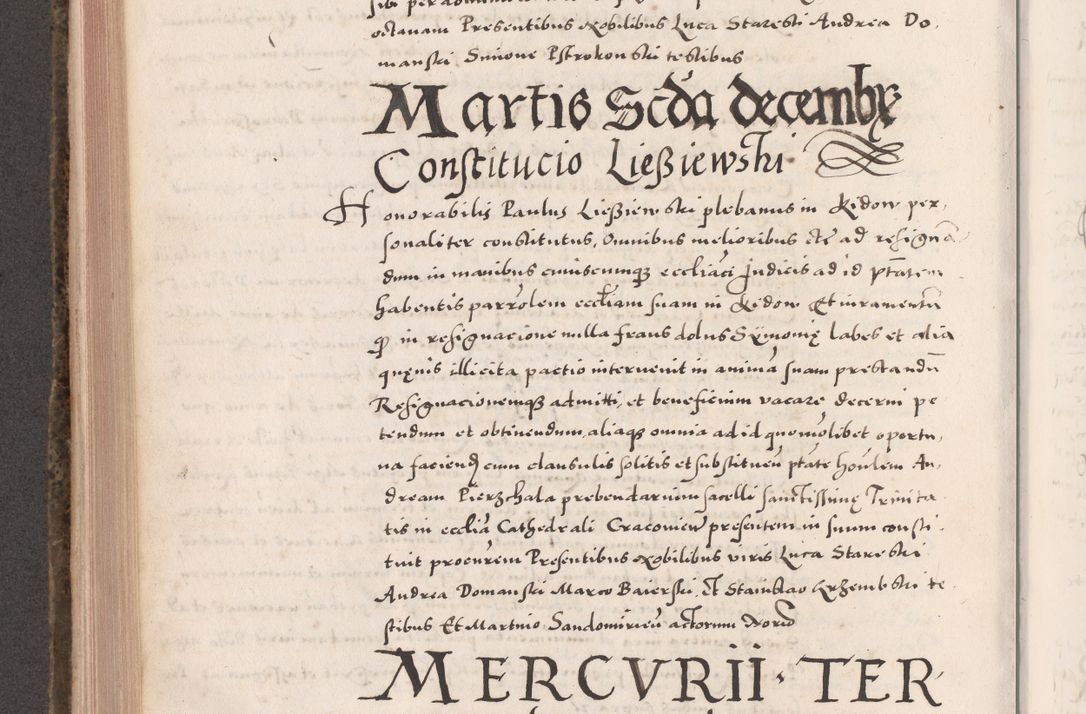 octavam Presentibus exobilibus Luca Stareski Andrea Do-
manski Simone Pstrokonski testibus
Martis Scda decembr
Constitucio Ließiewski
Honorabilis Paulus Ließiewski plebanus in Kidow per-
sonaliter constitutus, Omnibus melioribus etc ad resignan-
dum in manibus cuiuscumq eccliaci Judicis ad id ptatem
habentis parrolem eccliam suam in Kidow Et iuramentu
q in resignacione nulla fraus dolus Sÿmonię labes et alia
quęuis illicita pactio interuenit in anima suam prestandu
Resignacionemq admitti, et beneficium vacare decerni pe-
tendum et obtinendum, aliaq omnia ad id quomolibet oportu-
na faciend cum clausulis solitis et substituen ptate honlem An-
dream Pierzchala prebendarium sacelli sanctissimę Trinita-
tis in ecclia Cathedrali Cracovien presentem in suum consti-
tuit procurem Presentibus exobilibus viris Luca Stareski
Andrea Domanski Marco Baierski, Et Stanislao Krzembski te-
stibus Et Martino Sandomirien actorum
MERCVRII · TER-